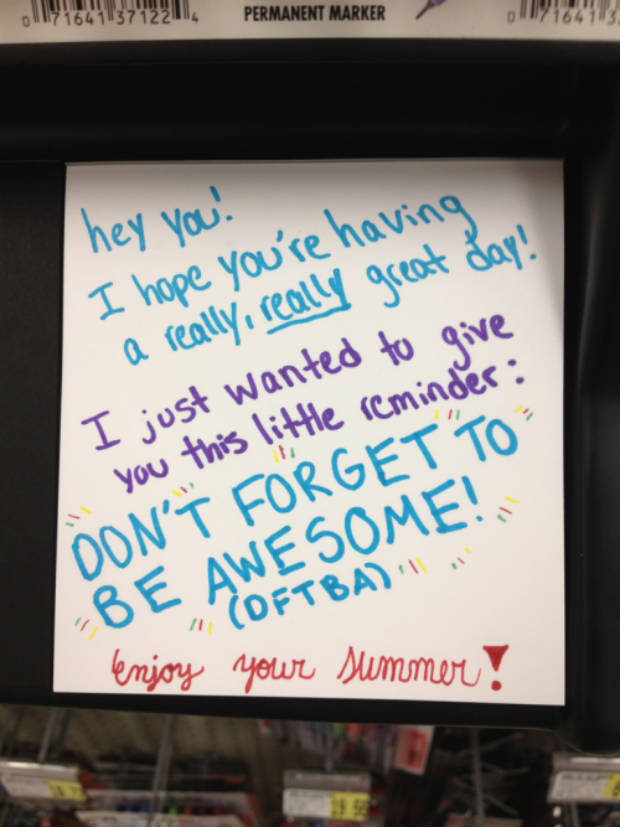 0 71641 37122 4 PERMANENT MARKER 0 71641 3
hey you!
I hope you're having
a really, really great day!
I just wanted to give
you this little reminder:
DON'T FORGET TO
BE AWESOME!
(DFTBA)
Enjoy your summer!